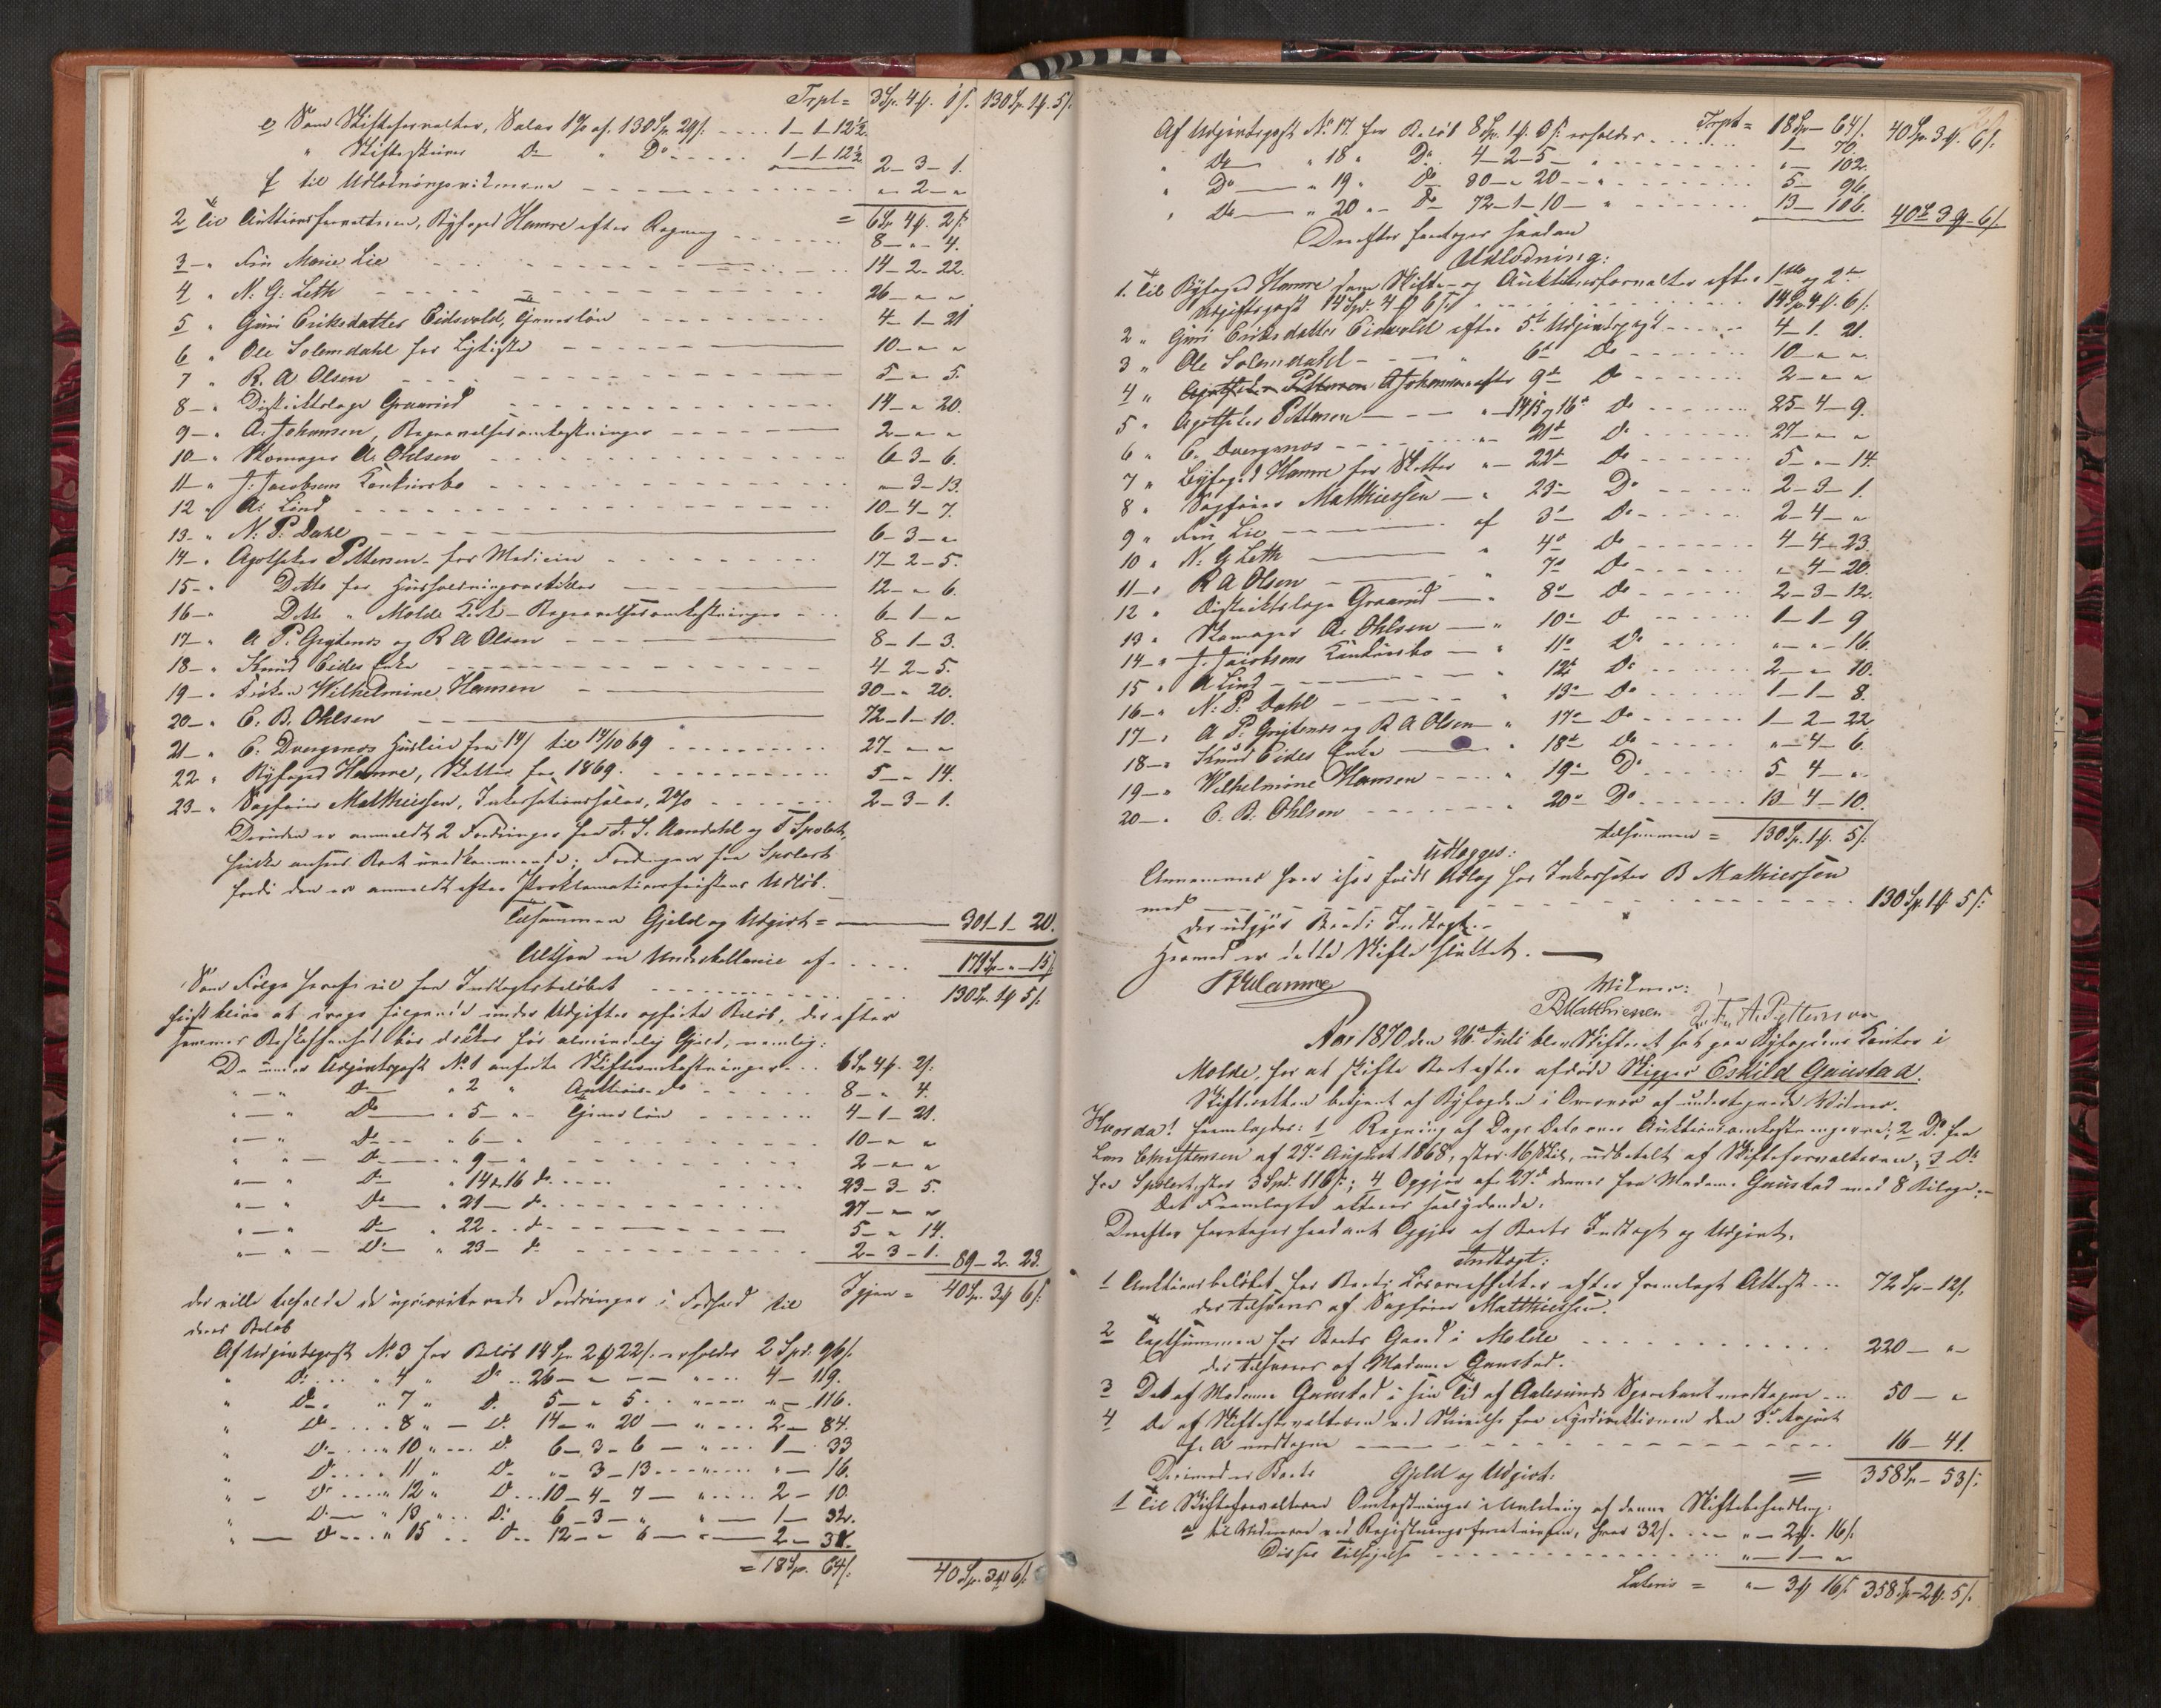 Trpt = 3 Sp. 4 ß. 1 s. 130 Sp. 1 ß. 5 s.
e, Som Skifteforvalter, Salar 1% af 130 Sp. 29 s. 1-1-12½
" Skifteskriver Do " Do 1-1-12½ 2-3-1.
f til Udlodningsvidnerne "-2-"
= 6 Sp. 4 ß. 2 s.
2 Til Auktionsforvalteren, Byfoged Hamre efter Regning 8-"-4.
3 " Frk Marie Lie 14-2-22.
4 " N. G. Leth 26-"-"
5 " Guri Eriksdatter Eidsvold, Tjenerløn 4-1-21
6 " Ole Solemdahl for Ligkiste 10-"-"
7 " R. A Olsen 5-"-5.
8 " Distriktslæge Graarud 14-"-20.
9 " A. Johansen, Begravelsesomkostninger 2-"-"
10 " Skomager A. Ohlsen 6-3-6.
11 " J. Jacobsens Konkursbo "-3-13.
12 " A. Lind 10-4-7.
13 " N. P. Dahl 6-3-"
14 " Apotheker Pettersen for Medicin 17-2-5.
15 " Ditto for Huusholdningsartikler 12-"-6.
16 " Ditto " Molde Kirke Begravelsesomkostninger 6-1-"
17 " A P. Grytenes og R A Olsen 8-1-3.
18 " Knud Eides Enke 4-2-5.
19 " Frøken Wilhelmine Hansen 30-"-20.
20 " E. B. Ohlsen 72-1-10.
21 " E. Dvergsnes Husleie fra 14/ til 14/10 69 27-"-"
22 " Byfoged Hamre, Skatter for 1869. 5-"-14.
23 " Sagfører Mathiessen, Inkassationssalar, 2% 2-3-1.
Desuden er anmeldt 2 Fordringer fra J. S. Aandahl og T Spolert,
hvilke ansees Boet uvedkommende; Fordringen fra Spolert
fordi den er anmeldt efter Proklamationsfristens Udløb.
Tilsammen Gjeld og Udgivt = 301-1-20.
Altsaa en Underballance af 171 Sp-"-15 s
Som Følge heraf vil fra Indtægtsbeløbet 130 Sp. 1 ß 5 s.
først blive at drage følgende under Udgifter opførte Beløb, der efter
sammes Beskaffenhed bør dækkes før almindelig Gjeld, nemlig:
De under Udgivtspost No 1 anførte Skifteomkostninger 6 Sp 4 ß. 2 s.
" Do " 2 " Auktions- do 8-"-4.
" Do " 5 " Tjenerløn 4-1-21.
" Do " 6 " 10-"-"
" Do " 9 " 2-"-"
" Do " 14 & 16 do 23-3-5.
" Do " 21 do 27-"-"
" Do " 22 do 5-"-14.
" Do " 23 do 2-3-1. 89-2-23.
Igjen = 40 Sp. 3 ß 6 s.
der ville tilfalde de uprioriterede Fordringer i Forhold til
deres Beløb
Af Udgivtspost No 3 for Beløb 14 Sp 2 ß 22 s. erholdes 2 Spd. 96 s.
" Do " 4 " Do 26-"-" " 4-119.
" Do " 7 " Do 5-"-5 " "-116.
" Do " 8 " Do 14-"-20 " 2-84.
" Do " 10 " Do 6-3-6 " 1-33
" Do " 11 " Do "-3-13 " "-16.
" Do " 12 " Do 10-4-7 " 2-10.
" Do " 13 " Do 6-3-" " 1-32.
" Do " 15 Do 12-"-6 " 2-38.
= 18 Sp. 64 s. 40 Sp. 3 ß 6 s.
Trpt = 18 Sp-64 s. 40 Sp. 3 ß. 6 s.
Af Udgivtspost No 17 for Beløb 8 Sp. 1 ß. 3 s. erholdes 1-70.
" Do " 18 " Do 4-2-5 " "-102.
" Do " 19 " Do 30-"-20 " 5-96.
" Do " 20 " Do 72-1-10 " 13-106. 40 Sp 3 ß-6 s.
Derefter foretages saadan
Udlodning:
1. Til Byfoged Hamre som Skifte- og Auktionsforvalter efter 1ste og 2den
Udgivtspost 14 Spd. 4 ß 6 s. 14 Sp 4 ß. 6 s.
2 " Guri Eriksdatter Eidsvold efter 5te Udgivtspost 4-1-21.
3 " Ole Solemdahl " 6te Do 10-"-"
4 " Apotheker Pettersen A Johansen efter 9de Do 2-"-"
5 " Apotheker Pettersen " 14, 15 og 16de Do 25-4-9.
6 " E. Dvergsnes " 21de Do 27-"-"
7 " Byfoged Hamre for Skatter " 22de Do 5-"-14.
8 " Sagfører Mathiessen " 23de Do 2-3-1.
9 " Frk Lie af 3de Do 2-4-"
10 " N. G Leth " 4de Do 4-4-23
11 " R A Olsen " 7de Do "-4-20.
12 " Distriktslæge Graarud " 8de Do 2-3-12.
13 " Skomager A. Ohlsen " 10de Do 1-1-9
14 " J. Jacobsens Konkursbo " 11te Do "-"-16.
15 " A Lind " 12te Do 2-"-10.
16 " N. P. Dahl " 13de Do 1-1-8.
17 " A P. Grytenes og R A Olsen " 17de Do 1-2-22
18 " Knud Eides Enke " 18de Do "-4-6.
19 " Wilhelmine Hansen " 19de Do 5-4-"
20 " E. B. Ohlsen " 20de Do 13-4-10.
tilsammen = 130 Sp. 1 ß. 5 s.
Udlægges:
Annammes hver især fuldt Udlæg hos Inkassator B Mathiessen
med 130 Sp. 1 ß 5 s.
der udgjør Boets Indtægt.
Hermed er dette Skifte sluttet.
Hamre
Vidner:
B Matthiessen A. Pettersen
Aar 1870 den 26de Juli blev Skifteret sat paa Byfogdens Kontor i
Molde, for at skifte Boet efter afdøde Skipper Eskild Gaustad.
Skifteretten betjent af Byfogden i Overvær af undertegnede Vidner.
Hvorda! fremlagdes: 1 Regning af Dags Dato over Auktionsomkostningerne; 2 Do fra
Lars Christensen af 27de August 1868, stor 16 Skill, udbetalt af Skifteforvalteren; 3 Do
fra Spolert, stor 3 Spd. 116 s.; 4 Opgjør af 27de dennes fra Madame Gaustad med 8 Bilage.
Det Fremlagte atteres saalydende.
Derefter foretages saadant Opgjør af Boets Indtægt og Udgivt.
Indtægt:
1 Auktionsbeløbet for Boets Løsøreeffekter efter fremlagt Attest 72 Sp-12 s.
der tilsvares af Sagfører Matthiessen.
2 Taxtsummen for Boets Gaard i Molde 220-"-
der tilsvares af Madame Gaustad.
3 Det af Madame Gaustad i sin Tid af Aalesunds Sparebank modtagne 50-"
4 De af Skifteforvalteren ved Skrivelse fra Fyrdirektionen den 3de August
f. A modtagne 16-41.
= 358 Sp-53 s.
Derimod er Boets Gjeld og Udgivt:
1 Til Skifteforvalteren Omkostninger i Anledning af denne Skiftebehandling:
a til Vidnerne ved Registreringsforretningen, hver 32 s. "-2 ß. 16 s.
Disses Tilsigelse "-1-"
Lateris = "-3 ß 16 s 358 Sp-2 ß. 5 s.